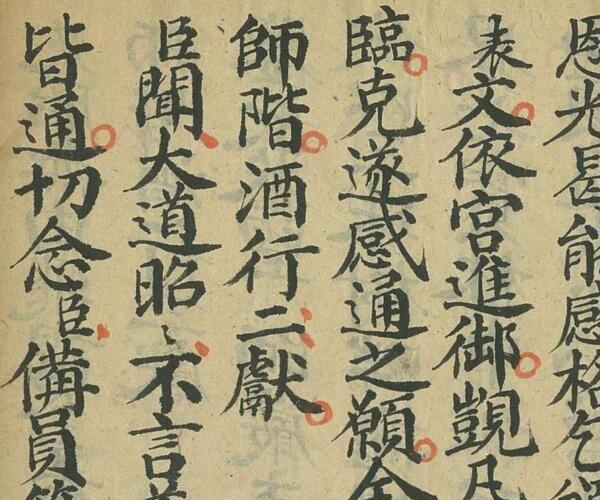 恩光曷能感格乞
表文依宮進御覬凡
臨克遂感通之願
師階酒行二獻
臣聞大道昭〻不言
皆通切念臣備員